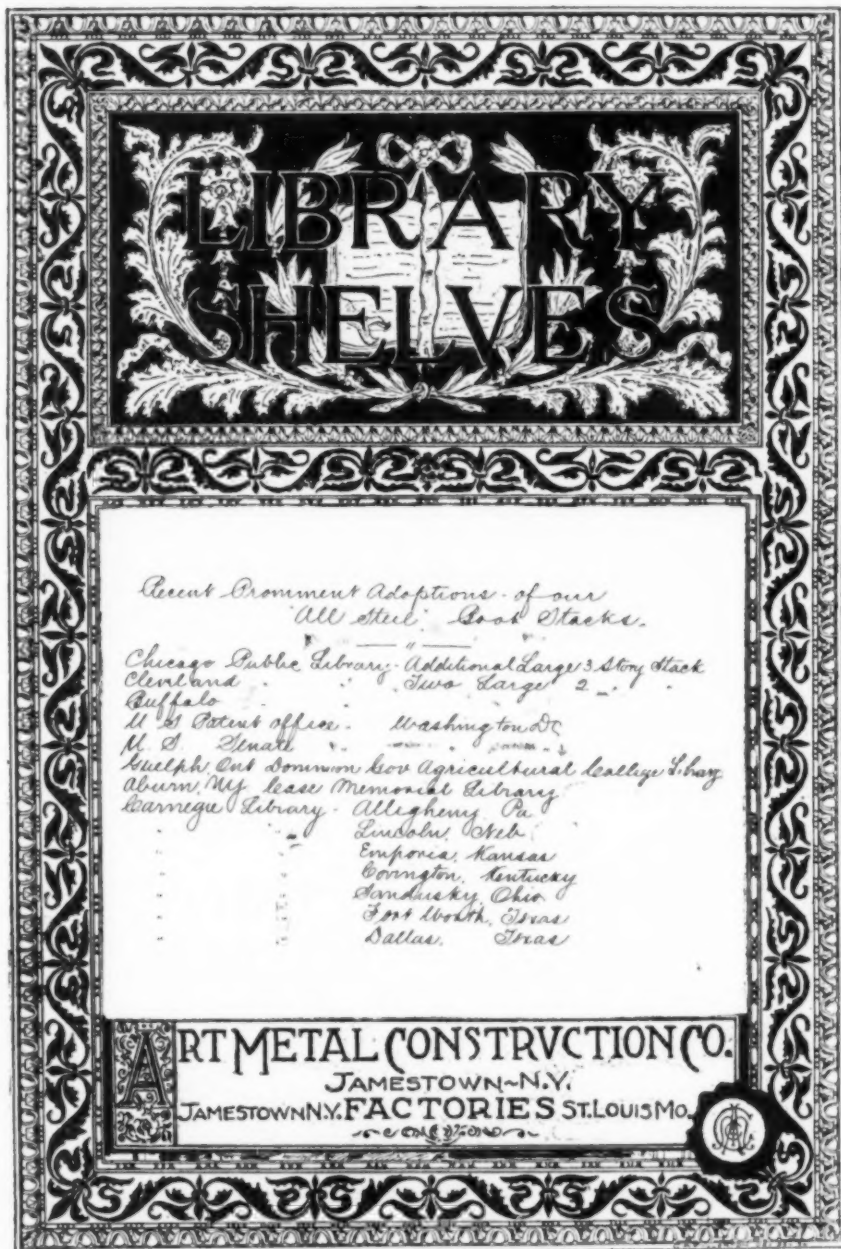 LIBRARY
SHELVES
Recent Prominent Adoptions of our
"All Steel" Book Stacks.
Chicago Public Library - Additional Large 3 Story Stack
Cleveland " " Two Large 2 - " "
Buffalo
U S Patent office - Washington DC
U. S. Senate " "
Guelph Ont Dominion Gov Agricultural College Library
Aburn NY Case Memorial Library
Carnegie Library - Allegheny Pa
" " Lincoln, Neb
" " Emporia, Kansas
" " Covington, Kentucky
" " Sandusky, Ohio
" " Fort Worth, Texas
" " Dallas, Texas
ART METAL CONSTRVCTION CO.
JAMESTOWN~N.Y.
JAMESTOWN N.Y. FACTORIES ST. LOUIS MO.